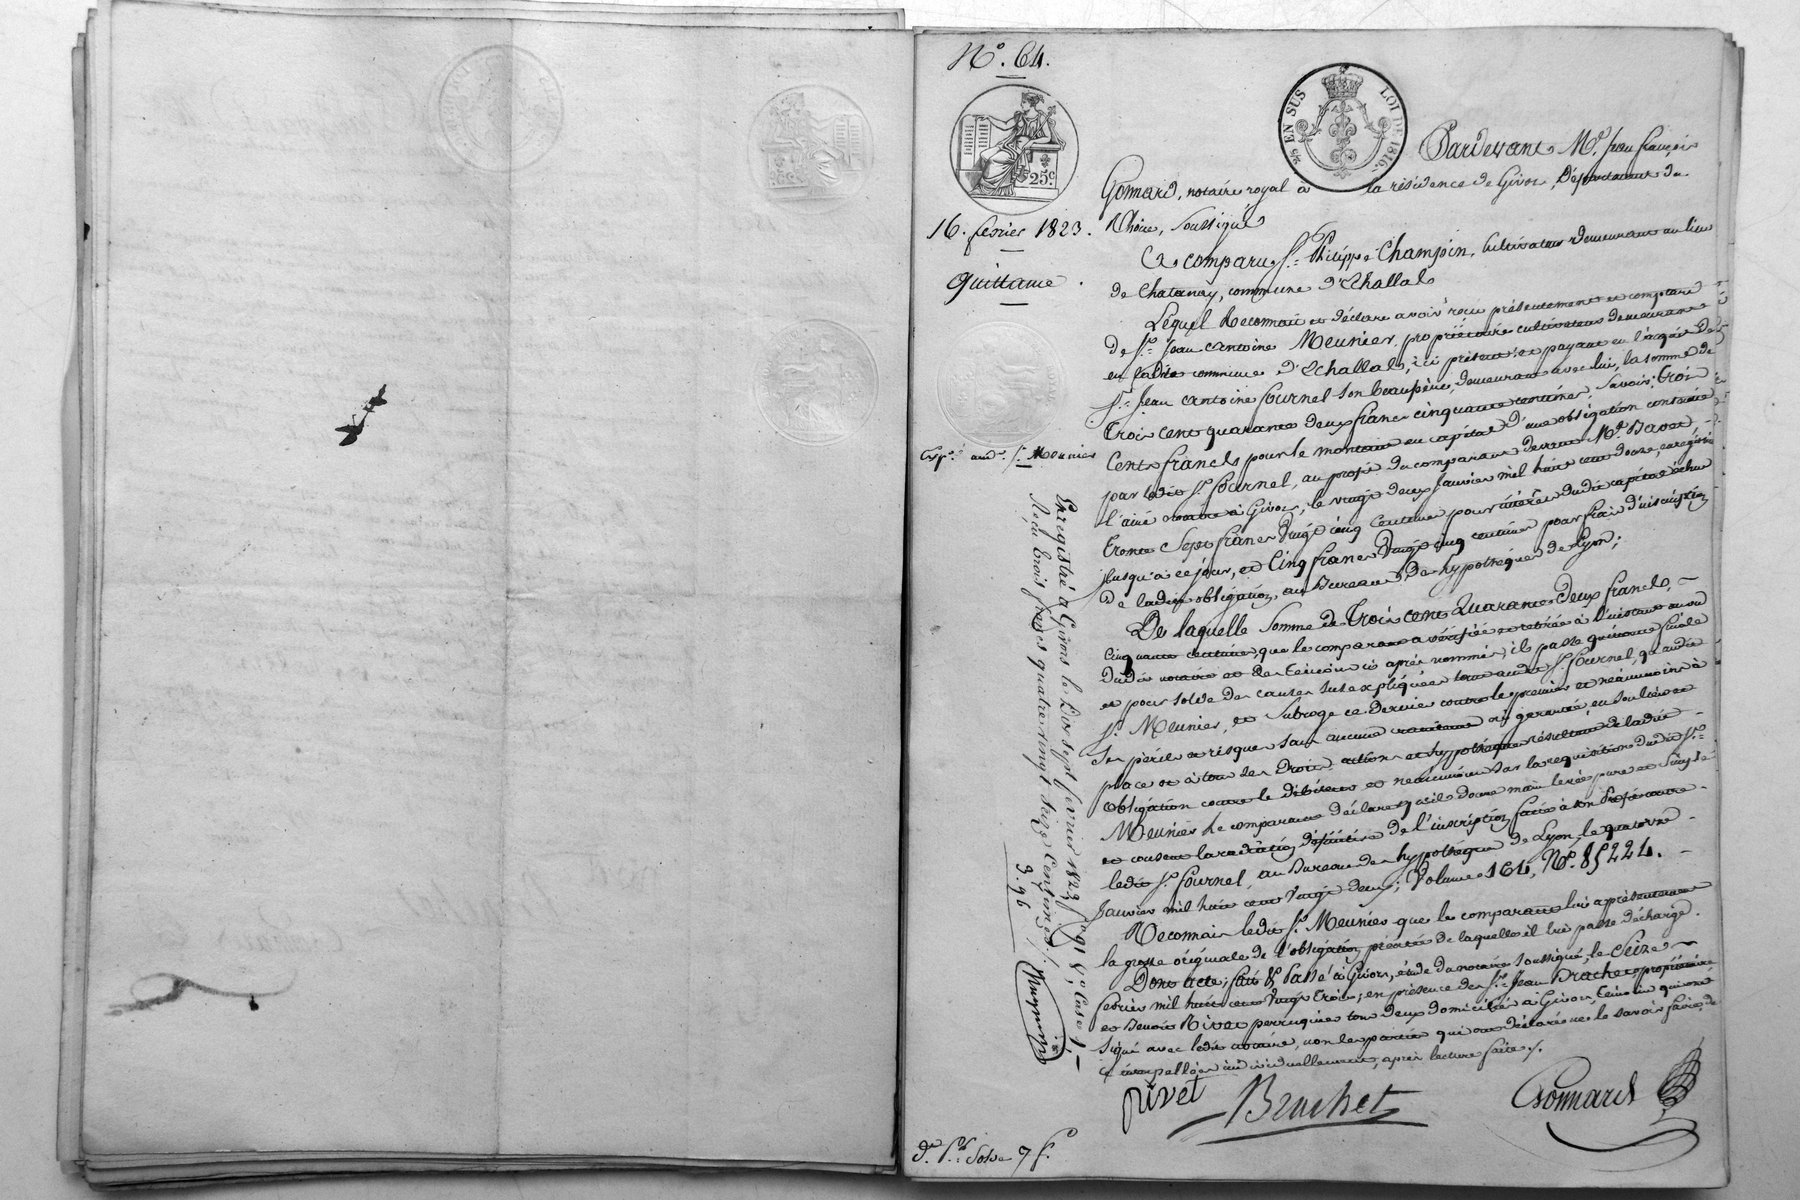 N.º 64.
25.c
5/10 EN SUS LOI DE 1816.
16. février 1823.
quittance.
Exp.é aud. S.r Meunier
Pardevant M.e Jean françois
Gonnard, notaire royal à la résidence de Givors, Département du
Rhône, soussigné
Est comparu S.r Philippe Champin, cultivateur demeurant au lieu
de Chatanay, commune d'Echallas
Lequel Reconnait et déclare avoir reçu présentement et comptant
de S.r Jean Antoine Meunier, propriétaire cultivateur demeurant
en ladite commune d'Echallas, ici présent, et payant en l'acquit de
S.r Jean Antoine fournel son beaupère, demeurant avec lui, la somme de
trois cent quarante deux francs cinquante centimes, Savoir, trois
Cents francs pour le montant en capital d'une obligation consentie
par ledit S.r fournel, au profit du comparant devant M.e
l'ainé notaire à Givors, le vingt deux Janvier mil huit cent douze, enregistrée
trente Sept francs Vingt cinq centimes pour intérêts dudit capital échus
jusqu'à ce jour, et Cinq francs Vingt cinq centimes pour frais d'inscription
de ladite obligation, au Bureau des hypothèques de Lyon;
De laquelle Somme de Trois cent Quarante Deux francs,
Cinquante centimes, que le comparant a vérifiée et retirée à l'instant au vu
dudit notaire et des témoins ci après nommés, il passe quittance finale
et pour solde des causes susexpliquées tant audit S.r fournel, qu'audit
S.r Meunier, et Subroge ce dernier contre le premier et néanmoins à
ses périls et risques sans aucune maintenue ni garantie, en son lieu et
place et à tous les Droits, actions et hypothèques résultant de ladite
obligation contre le débiteur et néanmoins sur la requisition dudit S.r
Meunier le comparant déclare qu'il donne main levée pure et Simple
et consent la radiation définitive de l'inscription faite à son Profit contre
ledit S.r fournel, au Bureau des hypothèques de Lyon, le quatorze
Janvier mil huit cent vingt deux, Volume 164, N.º 85224.
Reconnais ledit S.r Meunier que le comparant lui a présentement
la grosse originale de l'obligation précitée de laquelle il lui passe décharge.
Dont acte; fait & Passé à Givors, étude du notaire soussigné, le Seize
février mil huit cent Vingt trois; en présence des S.rs Jean Brachet propriétaire
et Benoit Rivet perruquier tous deux domiciliés à Givors, témoins qui ont
signé avec ledit notaire, non les parties qui ont déclaré ne le savoir faire, de
ce interpellées individuellement, après lecture faite.
Enregistré à Givors le Dix Sept février 1823 f.
Reçu trois francs quatre-vingt seize Centimes
3.96
rivet Brachet Gonnard